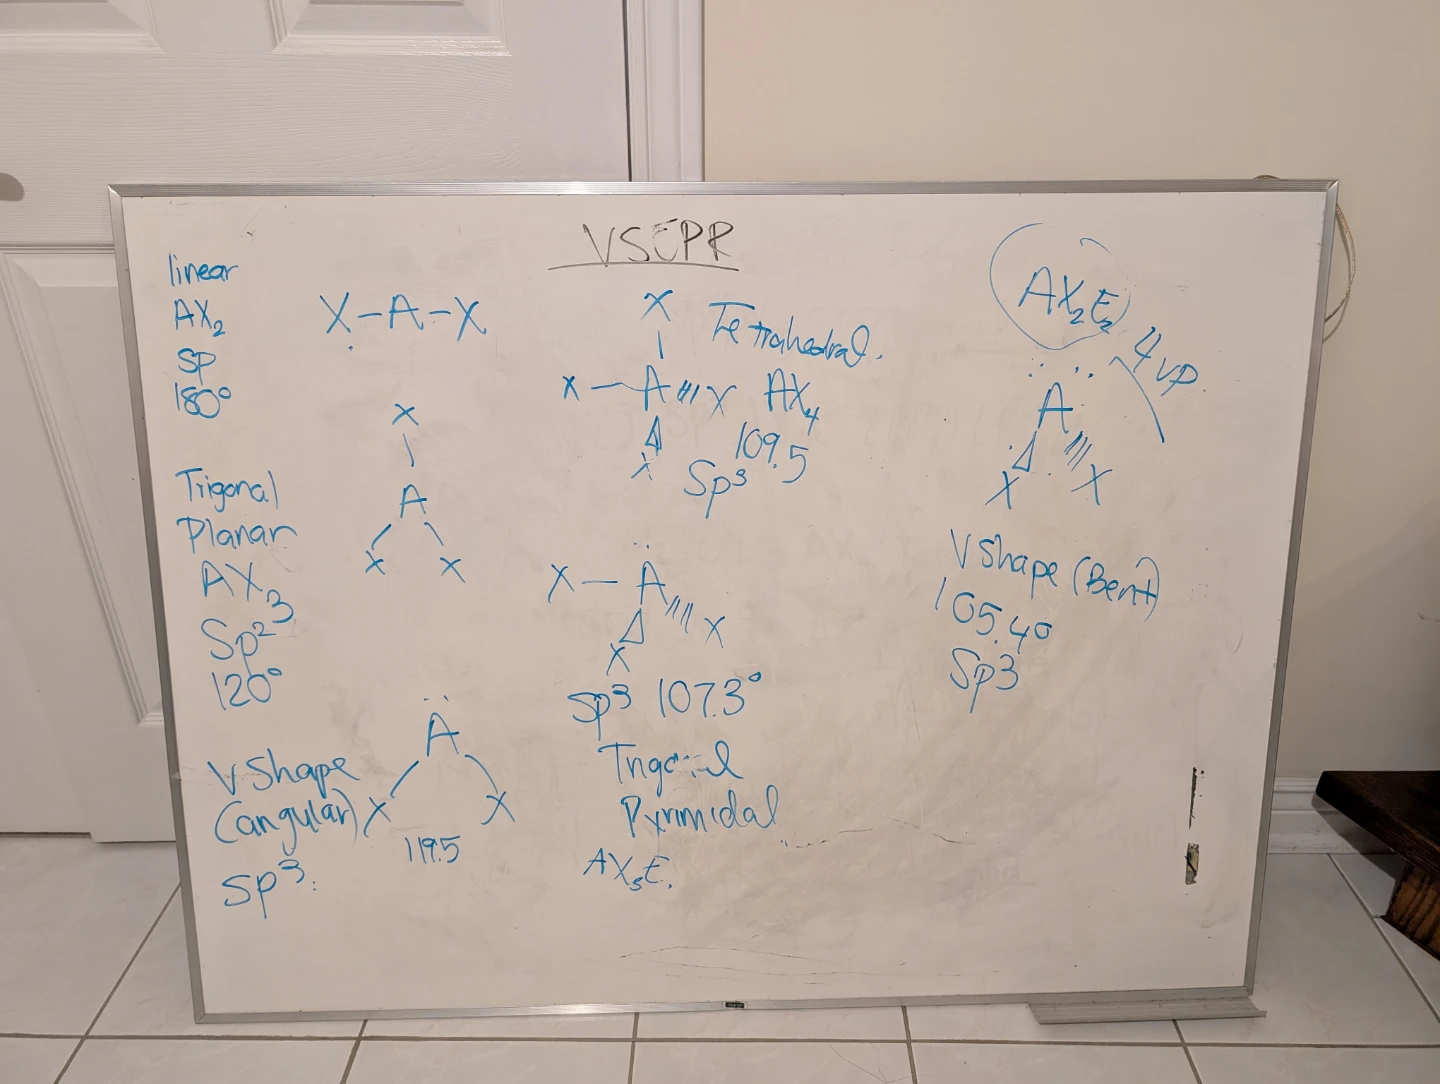 VSEPR
linear
AX₂
sp
180°
X-A-X
Trigonal
Planar
AX₃
Sp²
120°
X
A
X X
V Shape
(angular)
Sp³
A
X X
119.5
X
X A X
X
Tetrahedral.
AX₄
109.5
Sp³
X A
X X
Sp³ 107.3°
Trigonal
Pyrmidal
AX₃E.
AX₂E₂
4 VP
A
X X
V Shape (Bent)
105.4°
Sp3